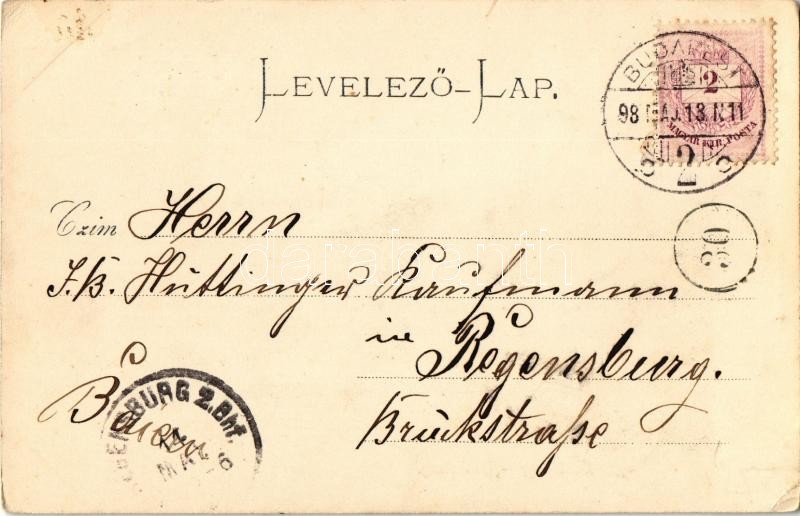 LEVELEZŐ-LAP.
BUDAPEST
98 MÁJ. 13. N11
2
2
MAGYAR KIR. POSTA
30
Czim Herrn
J. B. Huttinger Kaufmann
in Regensburg.
Baiern
Bruckstraße
REGENSBURG 2.Bhf.
14
MAI
darabanth